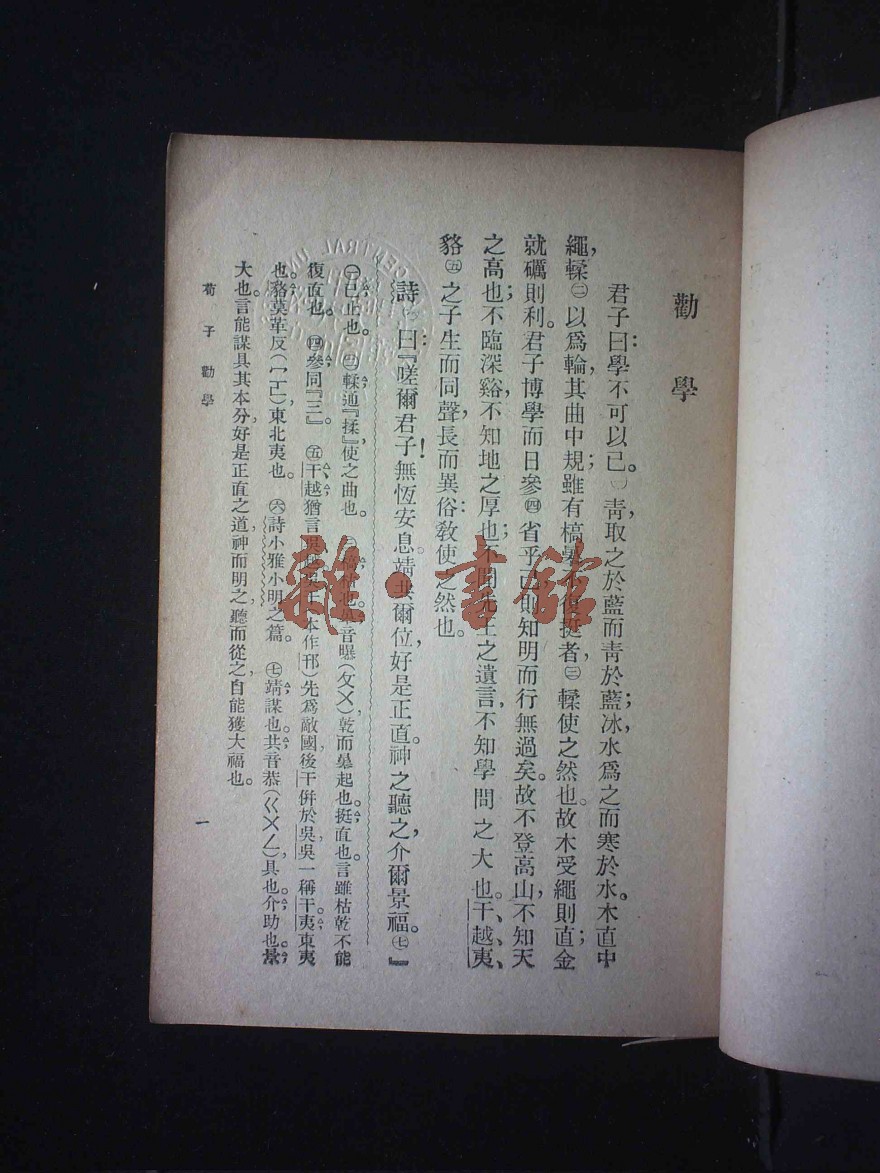 勸學
君子曰：學不可以已。㊀青，取之於藍而青於藍；冰，水爲之而寒於水。木直中
繩，輮㊁以爲輪，其曲中規；雖有槁暴，復挺者，㊂輮使之然也。故木受繩則直，金
就礪則利。君子博學而日參㊃省乎己，則知明而行無過矣。故不登高山，不知天
之高也；不臨深谿，不知地之厚也；不聞先王之遺言，不知學問之大也。干、越、夷、
貉㊄之子，生而同聲，長而異俗：敎使之然也。
詩曰：『嗟爾君子！無恆安息。靖共爾位，好是正直。神之聽之，介爾景福。㊆』
㊀已，止也。㊁輮通『揉，』使之曲也。暴音曝（ㄆㄨ），乾而暴起也。挺，直也。言雖枯乾不能
復直也。㊃參同『三』。㊄干越猶言吳越，本作邗）先爲敵國，後干併於吳，吳一稱干。夷，東夷
也。貉莫革反（ㄇㄛ），東北夷也。㊅詩小雅小明之篇。㊆靖，謀也。共音恭（ㄍㄨㄥ），具也。介，助也。景，
大也。言能謀具其本分，好是正直之道，神而明之，聽而從之，自能獲大福也。
荀子勸學
一
雜·書館
CENTRAL